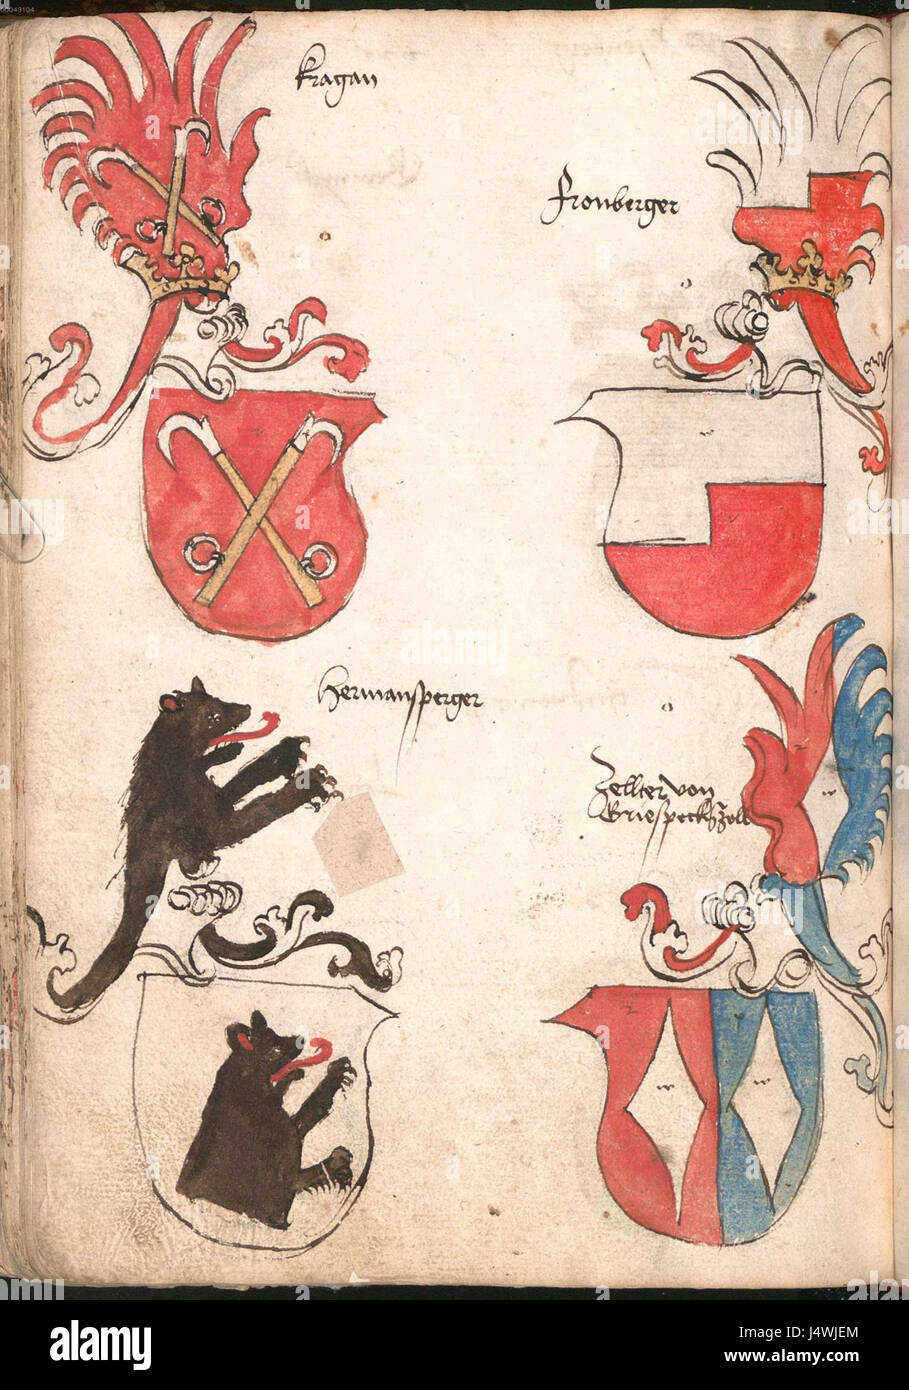 kragan
fronberger
hermansperger
zellter von
Griespeckhzell
w
w
w
w
alamy
Image ID: J4WJEM
www.alamy.com